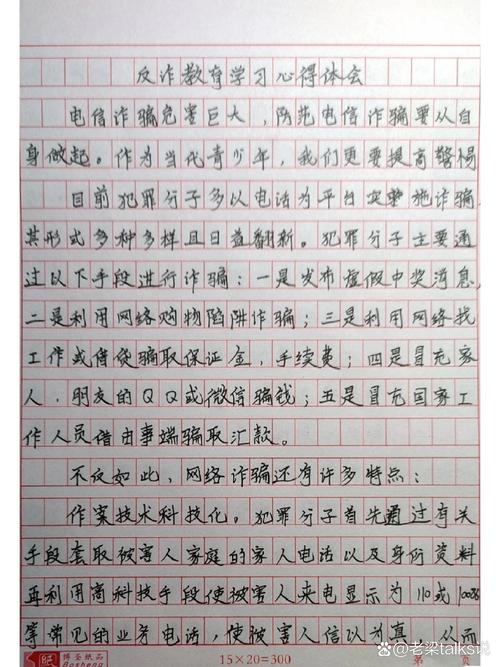 反诈教育学习心得体会
电信诈骗危害巨大，防范电信诈骗要从自
身做起。作为当代青少年，我们更要提高警惕
目前犯罪分子多以电话为平台实施诈骗
其形式多种多样且日益翻新。犯罪分子主要通
过以下手段进行诈骗：一是发布虚假中奖消息，
二是利用网络购物陷阱诈骗；三是利用网络找
工作或借贷骗取保证金，手续费；四是冒充家
人，朋友的QQ或微信骗钱；五是冒充国家工
作人员借由事端骗取汇款。
不仅如此，网络诈骗还有许多特点：
作案技术科技化。犯罪分子首先通过有关
手段套取被害人家庭的家人电话以及身份资料
再利用高科技手段使被害人来电显示为110或10086
等常见的业务电话，使被害人信以为真，从而
纸 博圣纸品
Bosheng
15×20=300
页
头条 @老梁talks说